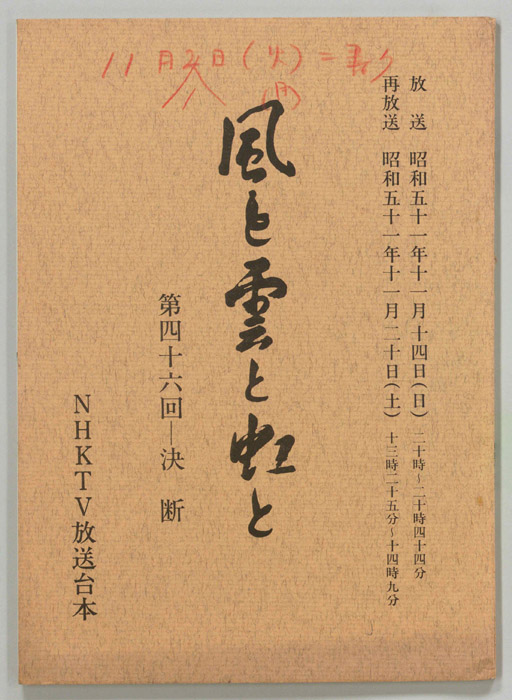 放 送 昭和五十一年十一月十四日(日) 二十時〜二十時四十四分
再放送 昭和五十一年十一月二十日(土) 十三時二十五分〜十四時九分
風と雲と虹と
第四十六回―決 断
NHKTV放送台本
11月2日(火)=
(月)